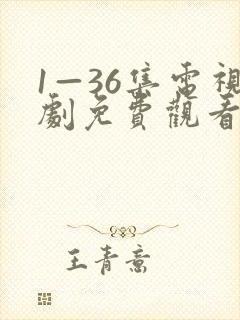 1—36集電視
劇免費觀看
王青意